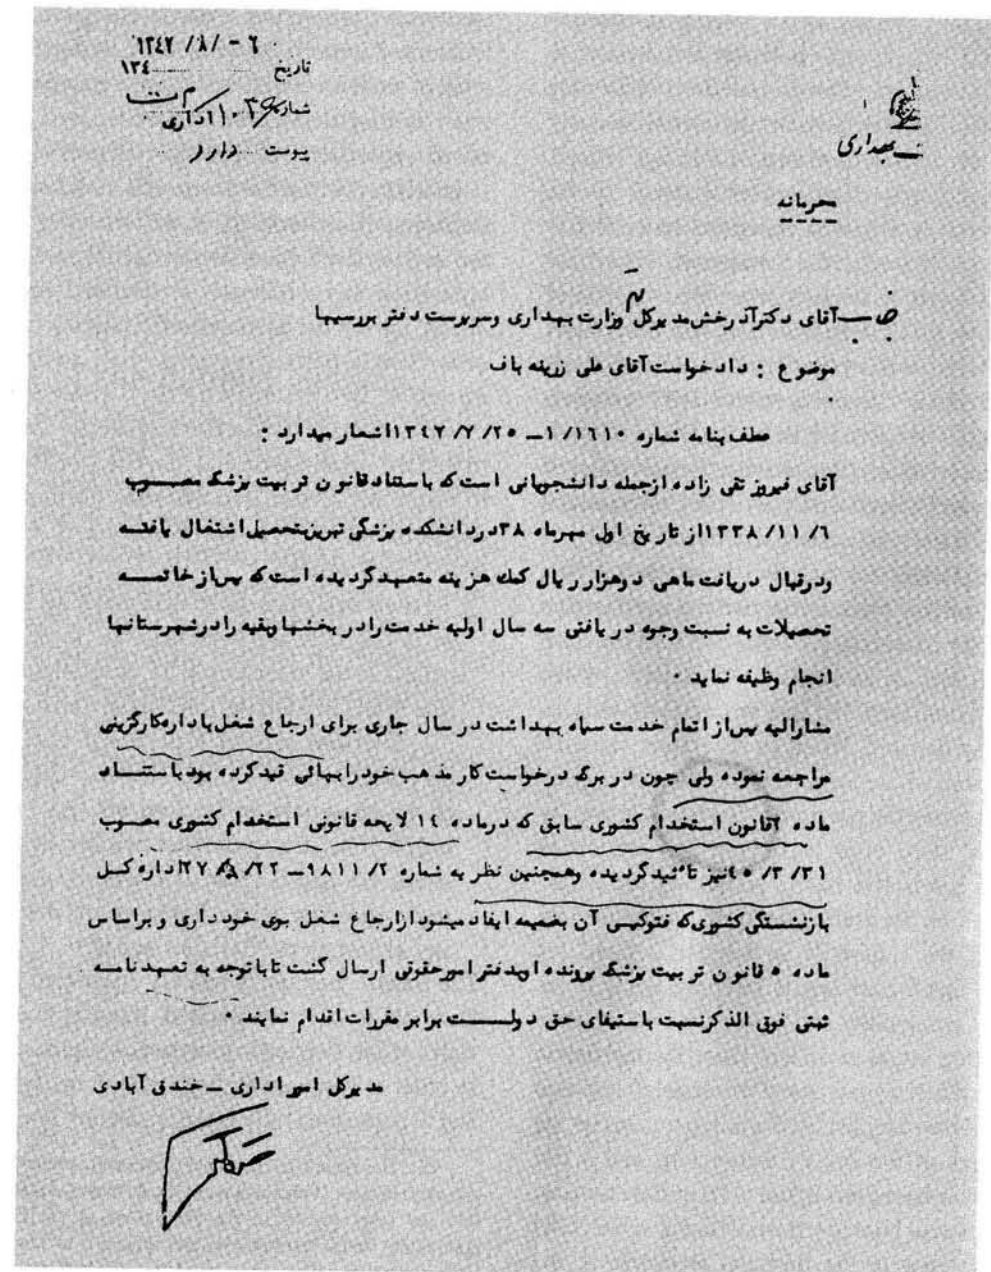 ۱۳۴۷ /۸/ - ۶
تاریخ ............ ۱۳۴
شماره ۱۰۳ اداری
پیوست دارد
بهداری
محرمانه
جناب آقای دکتر آذرخش مدیرکل وزارت بهداری وسرپرست دفتر بررسیها
موضوع : دادخواست آقای علی زرینه باف
عطف بنامه شماره ۱/۱۶۱۰ـ ۱۳۴۷/۷/۲۵ اشعار میدارد :
آقای فیروز تقی زاده ازجمله دانشجویانی است که باستناد قانون تربیت پزشک مصـــوب
۱۳۳۸/۱۱/۶ از تاریخ اول مهرماه ۳۸ در دانشکده پزشکی تبریز بتحصیل اشتغال یافتـــه
ودرقبال دریافت ماهی دوهزار ریال کمک هزینه متعهد گردیده است که پس از خاتمـــه
تحصیلات به نسبت وجوه دریافتی سه سال اولیه خدمت را در بخشها وبقیه را در شهرستانها
انجام وظیفه نماید ۰
مشارالیه پس از اتمام خدمت سپاه بهداشت در سال جاری برای ارجاع شغل باداره کارگزینی
مراجعه نموده ولی چون در برگ درخواست کار مذهب خود را بهائی قید کرده بود باستنـــاد
ماده ۲ قانون استخدام کشوری سابق که در ماده ۱۴ لایحه قانونی استخدام کشوری مصوب
۴۵/۳/۳۱ نیز تائید گردیده وهمچنین نظر به شماره ۹۸۱۱/۲ـ ۲۲/ /۲۷ اداره کـــل
بازنشستگی کشوری که فتوکپی آن بضمیمه ایفاد میشود از ارجاع شغل بوی خودداری و براساس
ماده ۵ قانون تربیت پزشک پرونده او بدفتر امور حقوقی ارسال گشت تا با توجه به تعهد نامـــه
ثبتی فوق الذکر نسبت باستیفای حق دولـــــت برابر مقررات اقدام نمایند ۰
مدیرکل امور اداری ـ خندق آبادی